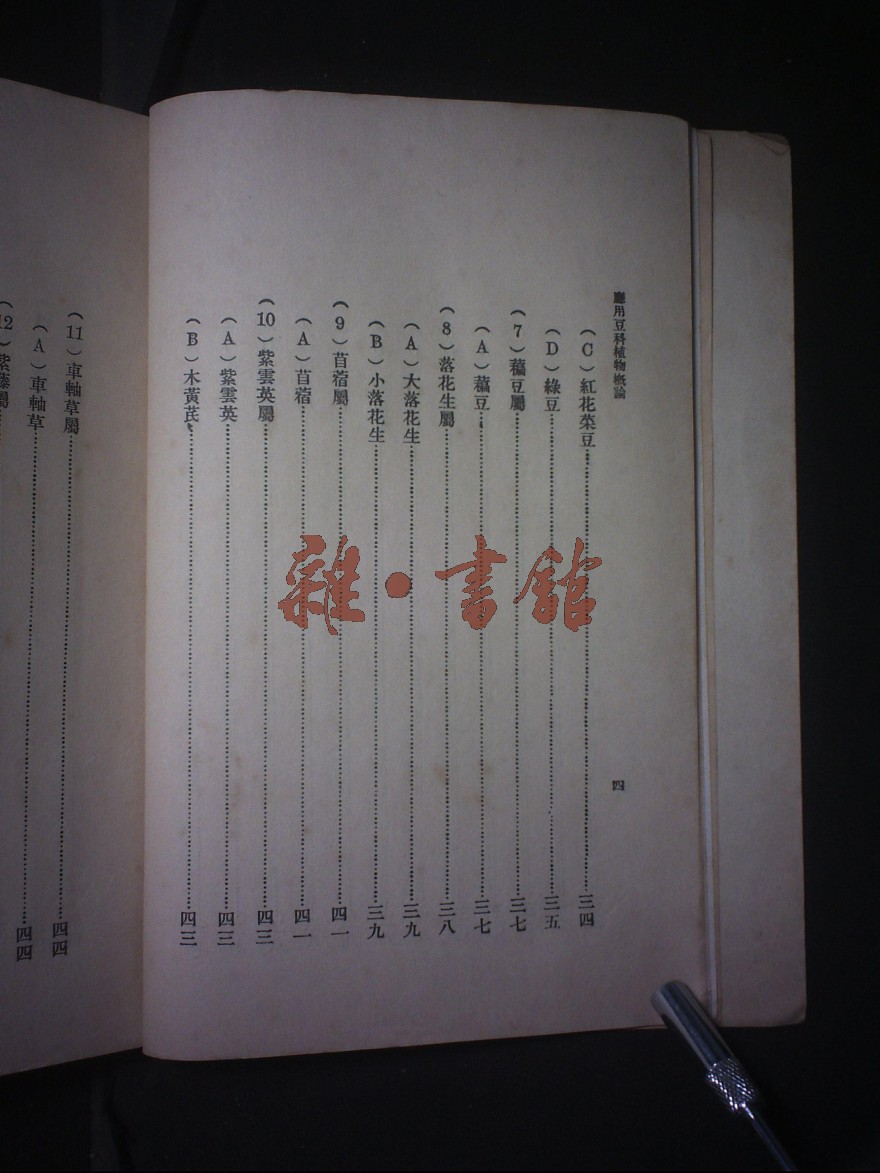 應用豆科植物概論
四
(C)紅花菜豆……三四
(D)綠豆……三五
(7)藊豆屬……三七
(A)藊豆……三七
(8)落花生屬……三八
(A)大落花生……三九
(B)小落花生……三九
(9)苜蓿屬……四一
(A)苜蓿……四一
(10)紫雲英屬……四三
(A)紫雲英……四三
(B)木黃芪……四三
(11)車軸草屬……四四
(A)車軸草……四四
(12)紫藤屬
雜·書館